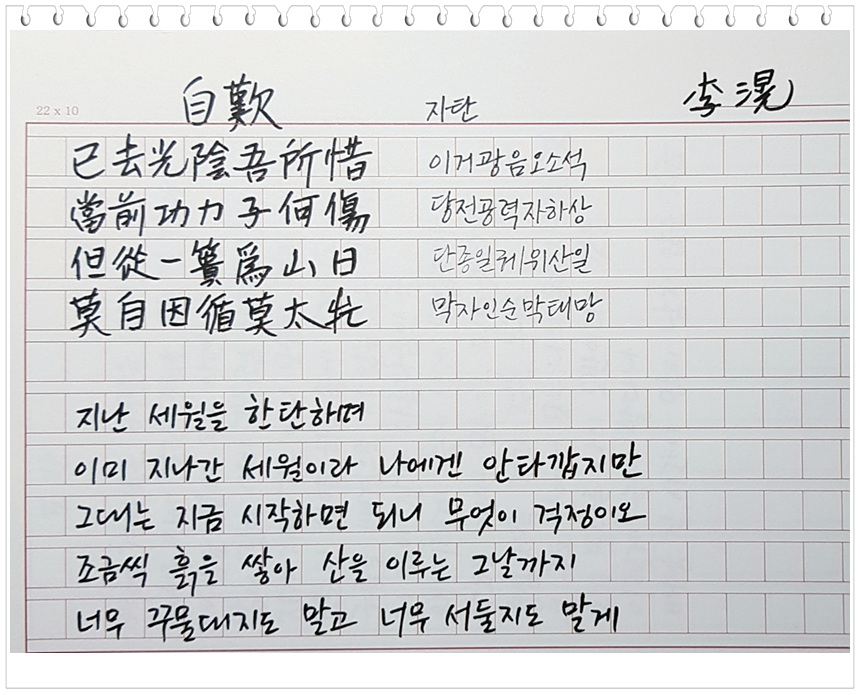 22 x 10
自歎 자탄 李滉
已去光陰吾所惜 이거광음오소석
當前功力子何傷 당전공력자하상
但從一簣爲山日 단종일궤위산일
莫自因循莫太忙 막자인순막태망
지난 세월을 한탄하며
이미 지나간 세월이라 나에겐 안타깝지만
그대는 지금 시작하면 되니 무엇이 걱정이오
조금씩 흙을 쌓아 산을 이루는 그날까지
너무 꾸물대지도 말고 너무 서둘지도 말게